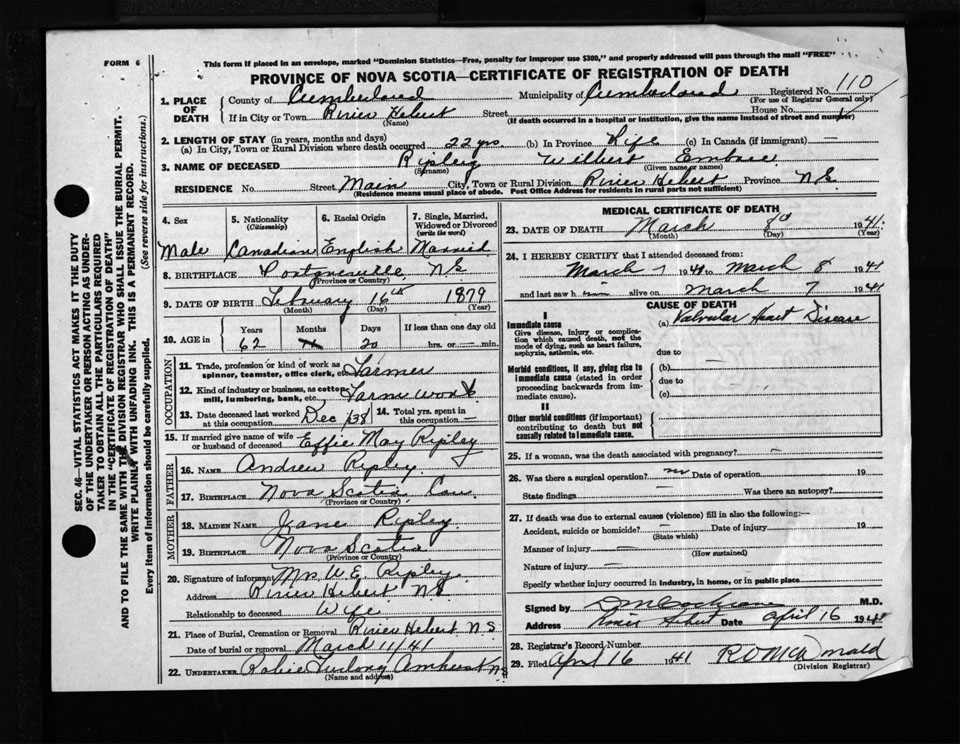 FORM 6
This form if placed in an envelope, marked "Dominion Statistics—Free, penalty for improper use $300," and properly addressed will pass through the mail "FREE"
PROVINCE OF NOVA SCOTIA—CERTIFICATE OF REGISTRATION OF DEATH
Registered No. 110
(For use of Registrar General only)
1. PLACE OF DEATH
County of Cumberland Municipality of Cumberland
If in City or Town River Hebert Street House No.
(Name) (If death occurred in a hospital or institution, give the name instead of street and number)
2. LENGTH OF STAY (in years, months and days)
(a) In City, Town or Rural Division where death occurred 22 yrs (b) In Province Life (c) In Canada (if immigrant) —
3. NAME OF DECEASED Ripley Wilbert
(Surname) (Given name or names)
RESIDENCE No. Street Main City, Town or Rural Division River Hebert Province N.S.
(Residence means usual place of abode. Post Office Address for residents in rural parts not sufficient)
4. Sex Male
5. Nationality (Citizenship) Canadian
6. Racial Origin English
7. Single, Married, Widowed or Divorced (write the word) Married
8. BIRTHPLACE N.S.
(Province or Country)
9. DATE OF BIRTH February 16th 1879
(Month) (Day) (Year)
10. AGE in Years Months Days If less than one day old
62 20 hrs. or — min.
OCCUPATION
11. Trade, profession or kind of work as spinner, teamster, office clerk, etc. Farmer
12. Kind of industry or business, as cotton mill, lumbering, bank, etc. Farm Work
13. Date deceased last worked at this occupation Dec /38 14. Total yrs. spent in this occupation —
15. If married give name of wife or husband of deceased Effie May Ripley
FATHER
16. NAME Andrew Ripley
17. BIRTHPLACE Nova Scotia Can
(Province or Country)
MOTHER
18. MAIDEN NAME Jane Ripley
19. BIRTHPLACE Nova Scotia
(Province or Country)
20. Signature of informant Mrs W. E. Ripley
Address River Hebert N.S
Relationship to deceased Wife
21. Place of Burial, Cremation or Removal River Hebert N.S
Date of burial or removal March 11/41
22. UNDERTAKER Furlong Amherst N.S
(Name and address)
MEDICAL CERTIFICATE OF DEATH
23. DATE OF DEATH March 8th 1941
(Month) (Day) (Year)
24. I HEREBY CERTIFY that I attended deceased from:
March 7 1941 to March 8 1941
and last saw h im alive on March 7 1941
CAUSE OF DEATH
I
Immediate cause (a) Valvular Heart Disease
Give disease, injury or complication which caused death, not the mode of dying, such as heart failure, asphyxia, asthenia, etc.
due to —
Morbid conditions, if any, giving rise to immediate cause (stated in order proceeding backwards from immediate cause). (b)
due to
(c)
II
Other morbid conditions (if important) contributing to death but not causally related to immediate cause.
25. If a woman, was the death associated with pregnancy? —
26. Was there a surgical operation? no Date of operation 19
State findings — Was there an autopsy?
27. If death was due to external causes (violence) fill in also the following:—
Accident, suicide or homicide? — Date of injury 19
(State which)
Manner of injury —
(How sustained)
Nature of injury —
Specify whether injury occurred in industry, in home, or in public place
Signed by D M Cochrane M.D.
Address River Hebert Date April 16 1941
28. Registrar's Record Number
29. Filed Apr 16 1941 R D McDonald
(Division Registrar)
SEC. 46—VITAL STATISTICS ACT MAKES IT THE DUTY
OF THE UNDERTAKER OR PERSON ACTING AS UNDER-
TAKER TO OBTAIN ALL THE PARTICULARS REQUIRED
IN THE "CERTIFICATE OF REGISTRATION OF DEATH"
AND TO FILE THE SAME WITH THE DIVISION REGISTRAR WHO SHALL ISSUE THE BURIAL PERMIT.
WRITE PLAINLY WITH UNFADING INK. THIS IS A PERMANENT RECORD.
Every item of information should be carefully supplied. (See reverse side for instructions.)